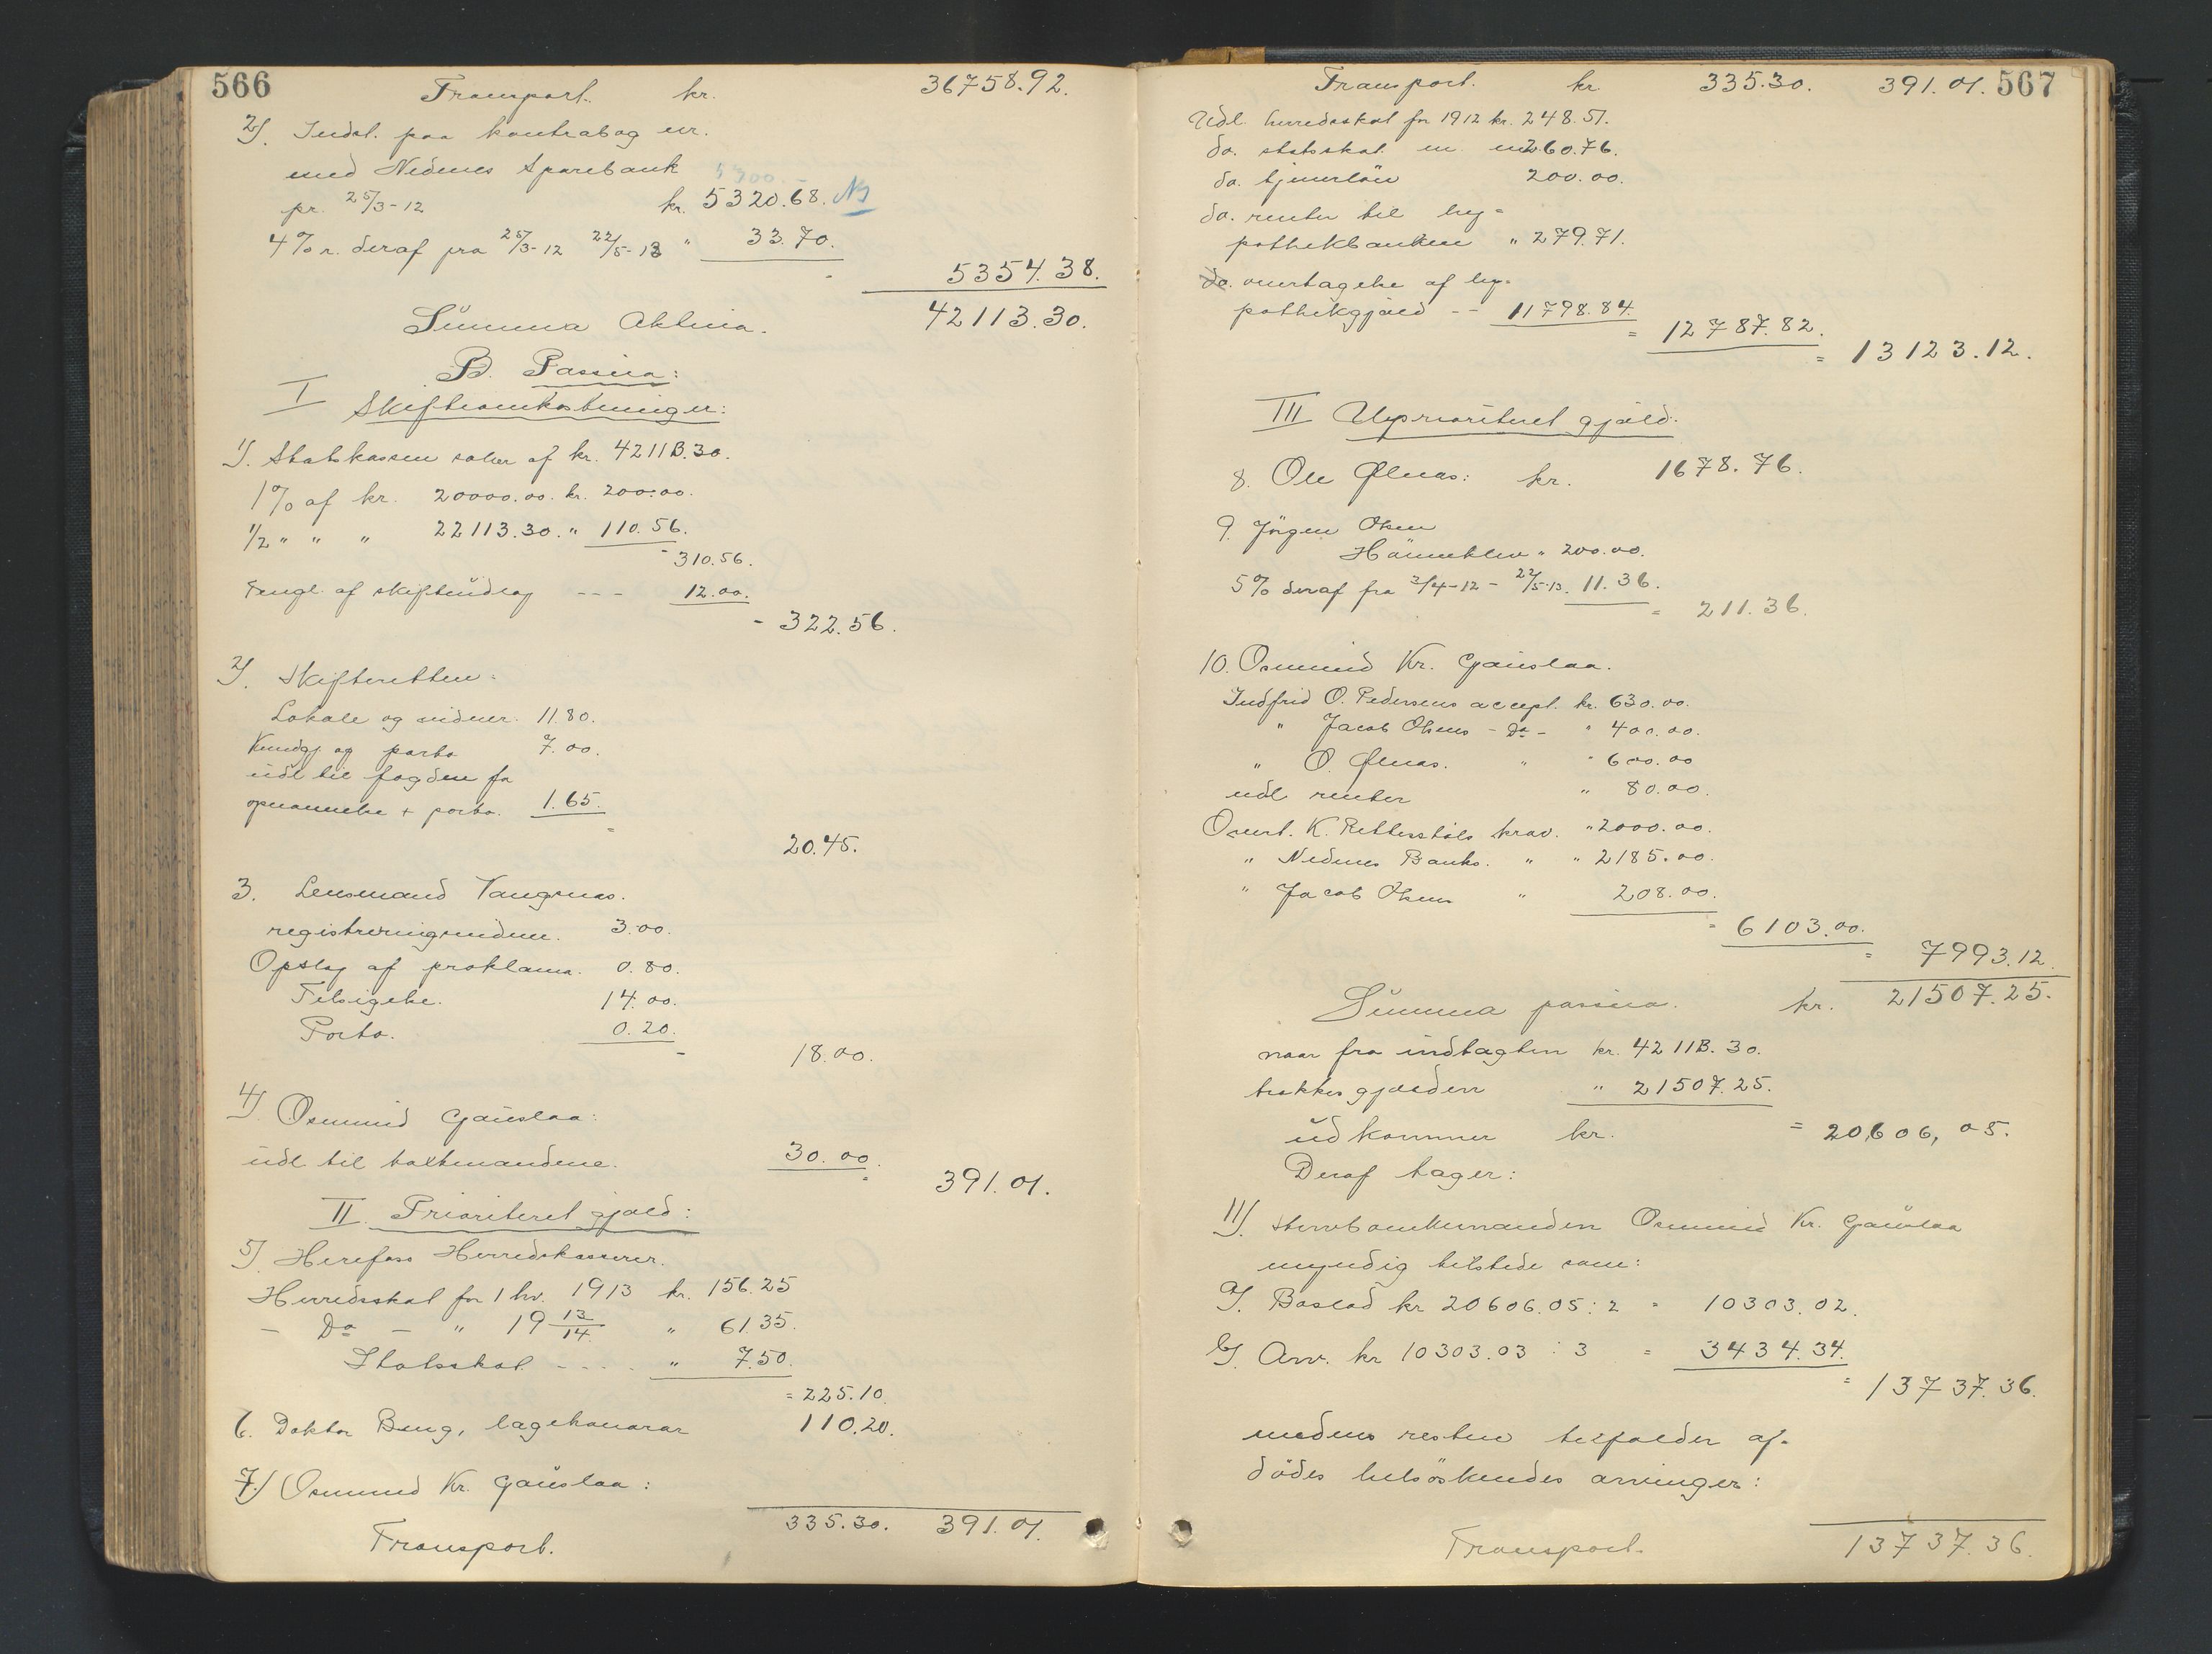 566
Transport. kr. 36758.92.
2). Indst. paa kontrabog nr.
med Nedenes Sparebank
5300.-
pr. 25/3-12 kr. 5320.68. NB
4% r. deraf fra 25/3-12 22/5-13 " 33.70.
5354.38.
Summa Aktiva. 42113.30.
B. Passiva:
I Skifteomkostninger:
1). Statskassen saker af kr. 42113.30.
1% af kr. 20000.00. kr. 200.00.
1/2 " " " 22113.30. " 110.56.
310.56.
Tingl. af skifteudlæg --- 12.00.
- 322.56.
2). Skifteretten:
Lokale og vidner. 11.80.
Kundgj og porto 7.00.
udl til fogden for
opnævnelse + porto. 1.65.
=
20.45.
3. Lensmand Vangsnes.
registreringsvidne. 3.00.
Opslag af proklama. 0.80.
Tilsigelse. 14.00.
Porto. 0.20.
18.00.
4) Osmund Gauslaa:
udl til takstmændene. 30.00.
= 391.01.
II. Prioriteret gjæld:
5). Herefoss Herredskasserer.
Herredsskat for 1 hv. 1913 kr. 156.25
- Do - " 19 13/14 " 61.35.
Statsskat ---- " 7.50.
= 225.10.
6. Doktor Beng, lægehonorar 110.20.
7.) Osmund Kr. Gauslaa:
Transport. 335.30. 391.01.
567
Transport. kr. 335.30. 391.01.
Udl. herredsskat for 1912 kr. 248.51.
do. statsskat 260.76.
do. tjenerløn 200.00.
do. renter til hy=
pothekbanken " 279.71.
do. overtagelse af hy=
pothekgjæld -- 11798.84.
= 12787.82.
= 13123.12.
III Uprioriteret gjæld:
8. Ole Ølnæs: kr. 1678.76.
9. Jörgen Olsen
" 200.00.
5% deraf fra 2/4-12 - 22/5-13. 11.36.
= 211.36.
10. Osmund Kr. Gauslaa.
Indfrid O. Pedersens accept. kr. 630.00.
" Jacob Olsens - Do - " 400.00.
" O. Ølnæs. " " 600.00
udl renter " 80.00.
Overt. K. Retterstøls krav. " 2000.00.
" Nedenes Banks. " " 2185.00.
" Jacob Olsens " 208.00.
= 6103.00.
= 7993.12.
Summa passiva. kr. 21507.25.
naar fra indtægten kr. 42113.30.
trækkes gjælden " 21507.25.
udkommer kr. = 20,606,05.
Deraf tager:
11). Stervboenkemanden Osmund Kr. Gauslaa
myndig tilstede som:
a). Boslod kr 20606.05 : 2 = 10303.02.
b). Arv. kr 10303.03 : 3 = 3434.34.
= 13737.36.
medens resten tilfalder af-
dödes helsöskendes arvinger:
Transport. 13737.36.